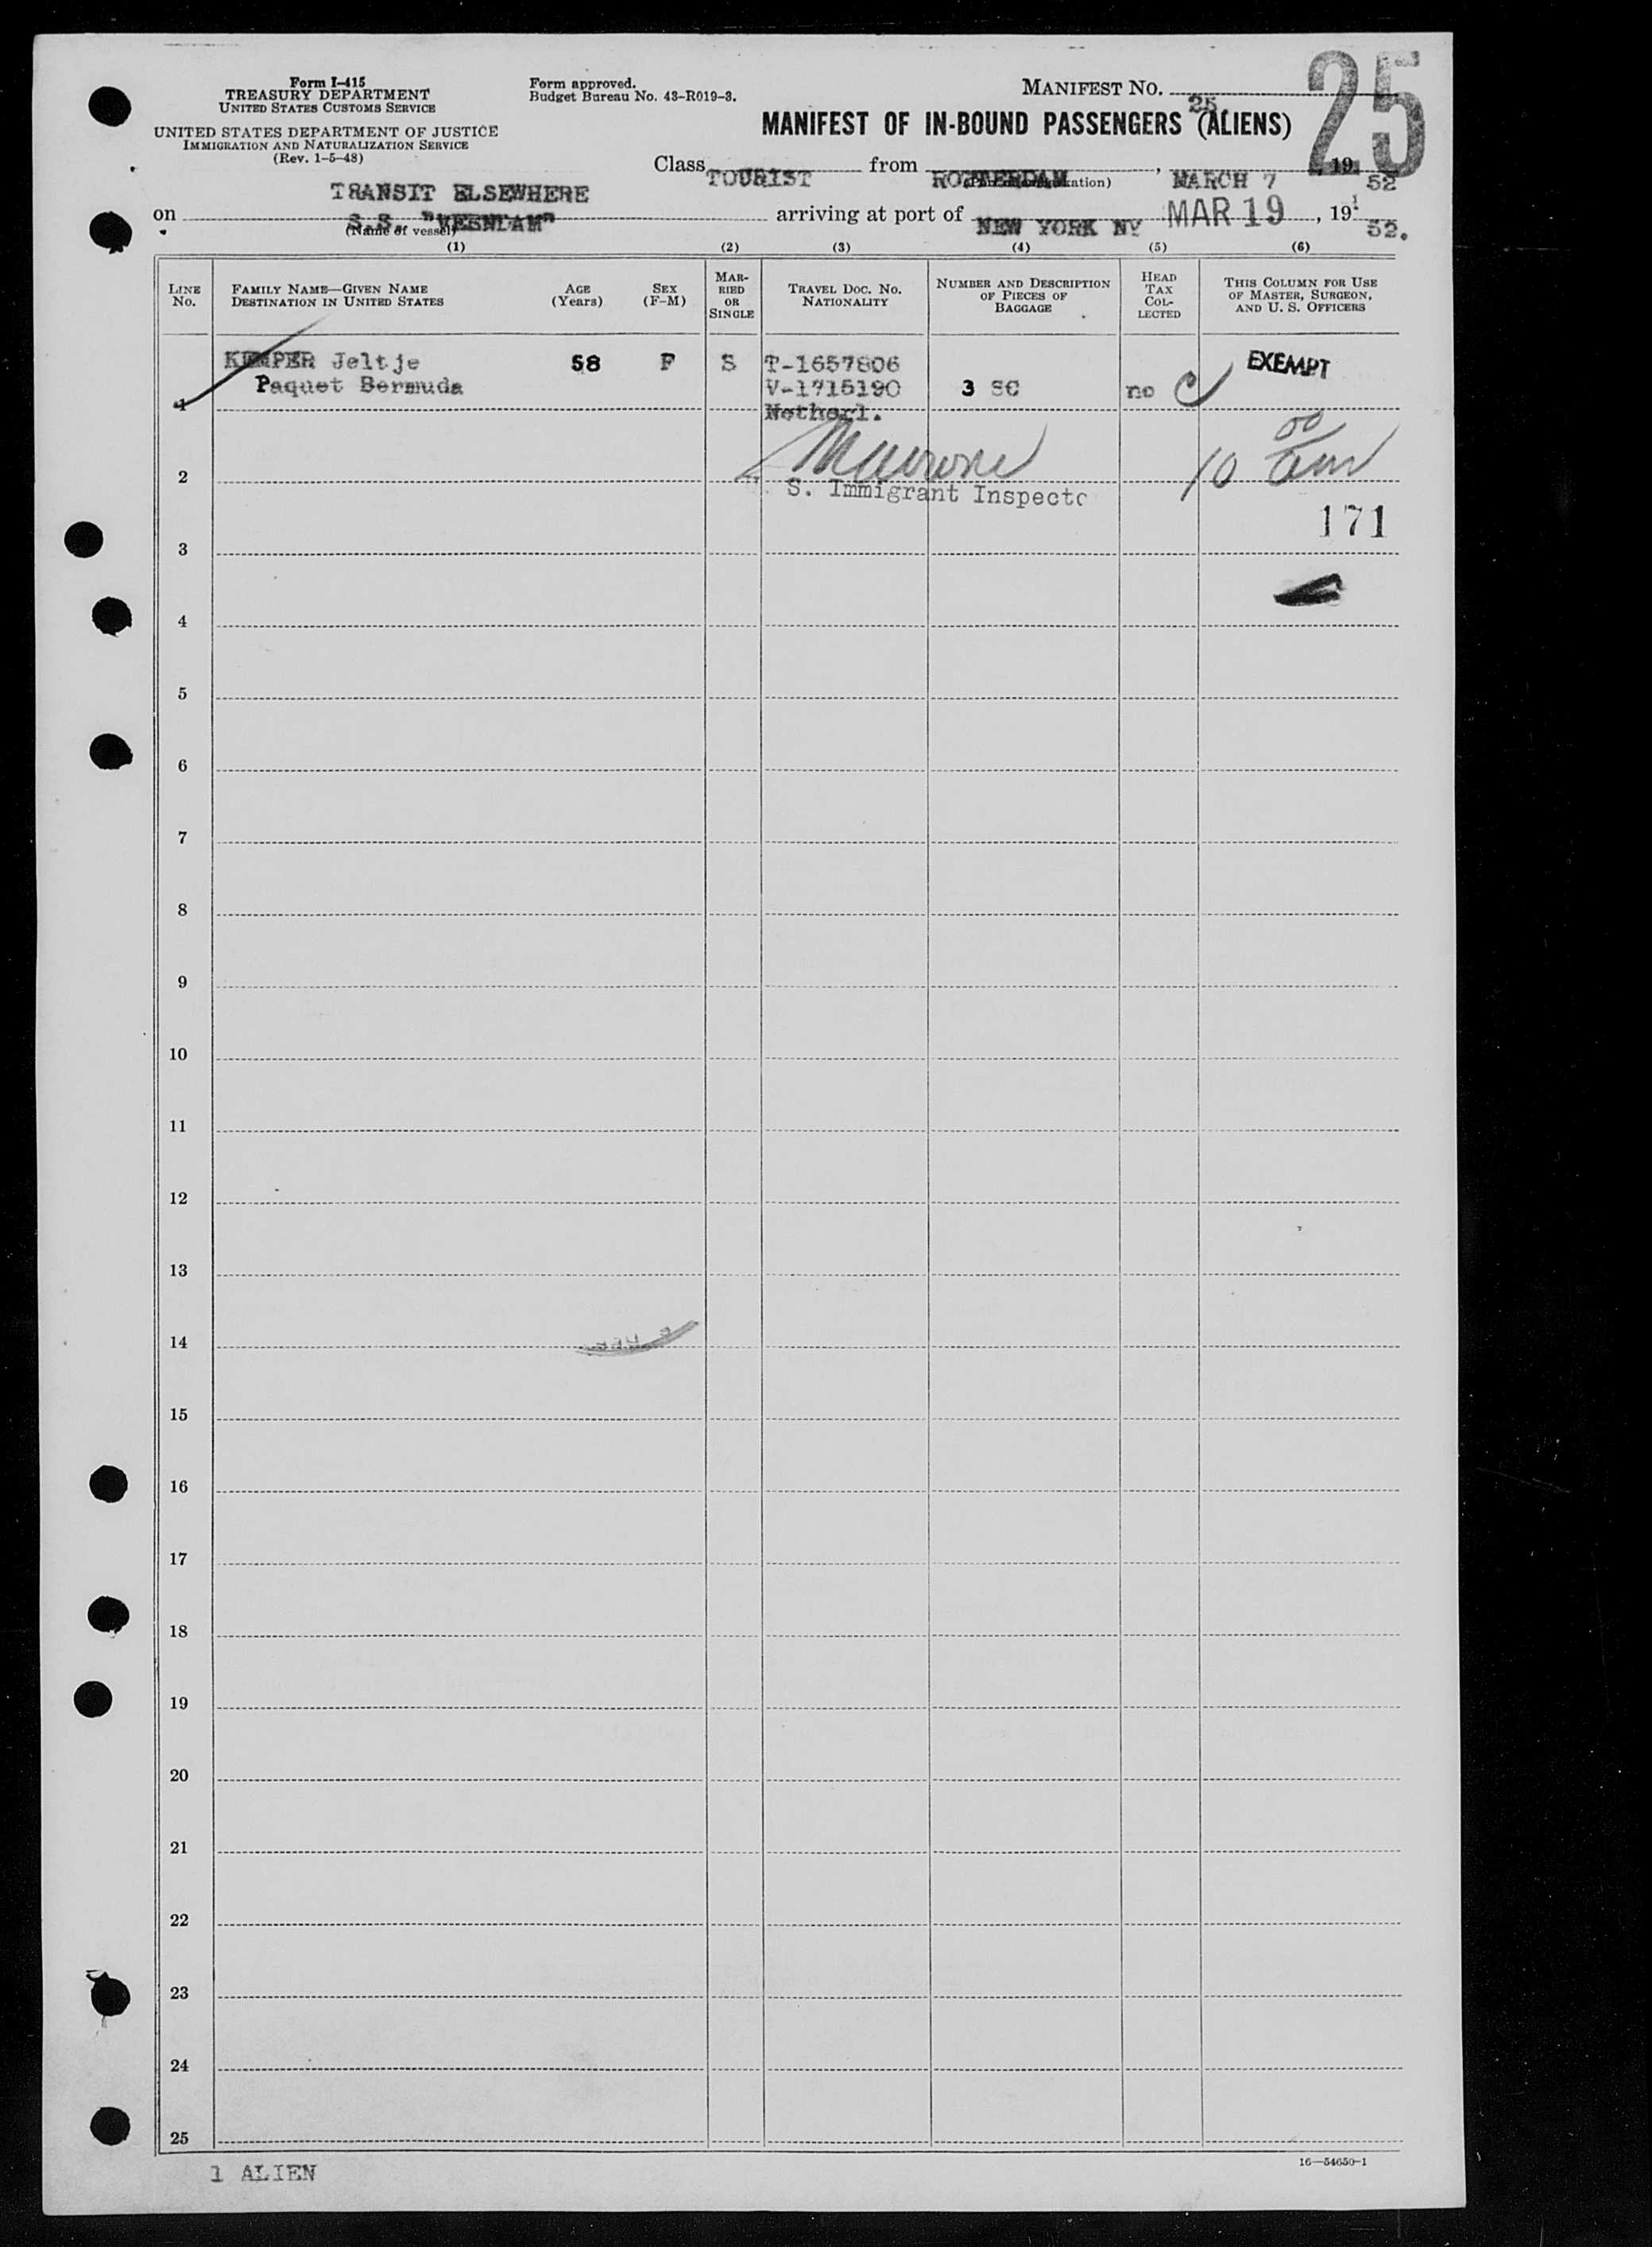 Form I-415
TREASURY DEPARTMENT
UNITED STATES CUSTOMS SERVICE
UNITED STATES DEPARTMENT OF JUSTICE
IMMIGRATION AND NATURALIZATION SERVICE
(Rev. 1-5-48)
Form approved.
Budget Bureau No. 43-R019-3.
MANIFEST NO. 25
25
MANIFEST OF IN-BOUND PASSENGERS (ALIENS)
Class TOURIST from ROTTERDAM, MARCH 7, 19 52
TRANSIT ELSEWHERE
on S.S. "VEENDAM" arriving at port of NEW YORK NY MAR 19, 19 52.
(Name of vessel)
(1) (2) (3) (4) (5) (6)
LINE No. FAMILY NAME—GIVEN NAME DESTINATION IN UNITED STATES AGE (Years) SEX (F-M) MARRIED OR SINGLE TRAVEL DOC. NO. NATIONALITY NUMBER AND DESCRIPTION OF PIECES OF BAGGAGE HEAD TAX COLLECTED THIS COLUMN FOR USE OF MASTER, SURGEON, AND U. S. OFFICERS
KEMPER Jeltje 58 F S T-1657806 EXEMPT
Paquet Bermuda V-1715190 3 SC no
1 Netherl.
2 10 00
S. Immigrant Inspecto
171
3
4
5
6
7
8
9
10
11
12
13
14
15
16
17
18
19
20
21
22
23
24
25
1 ALIEN
16—54650-1